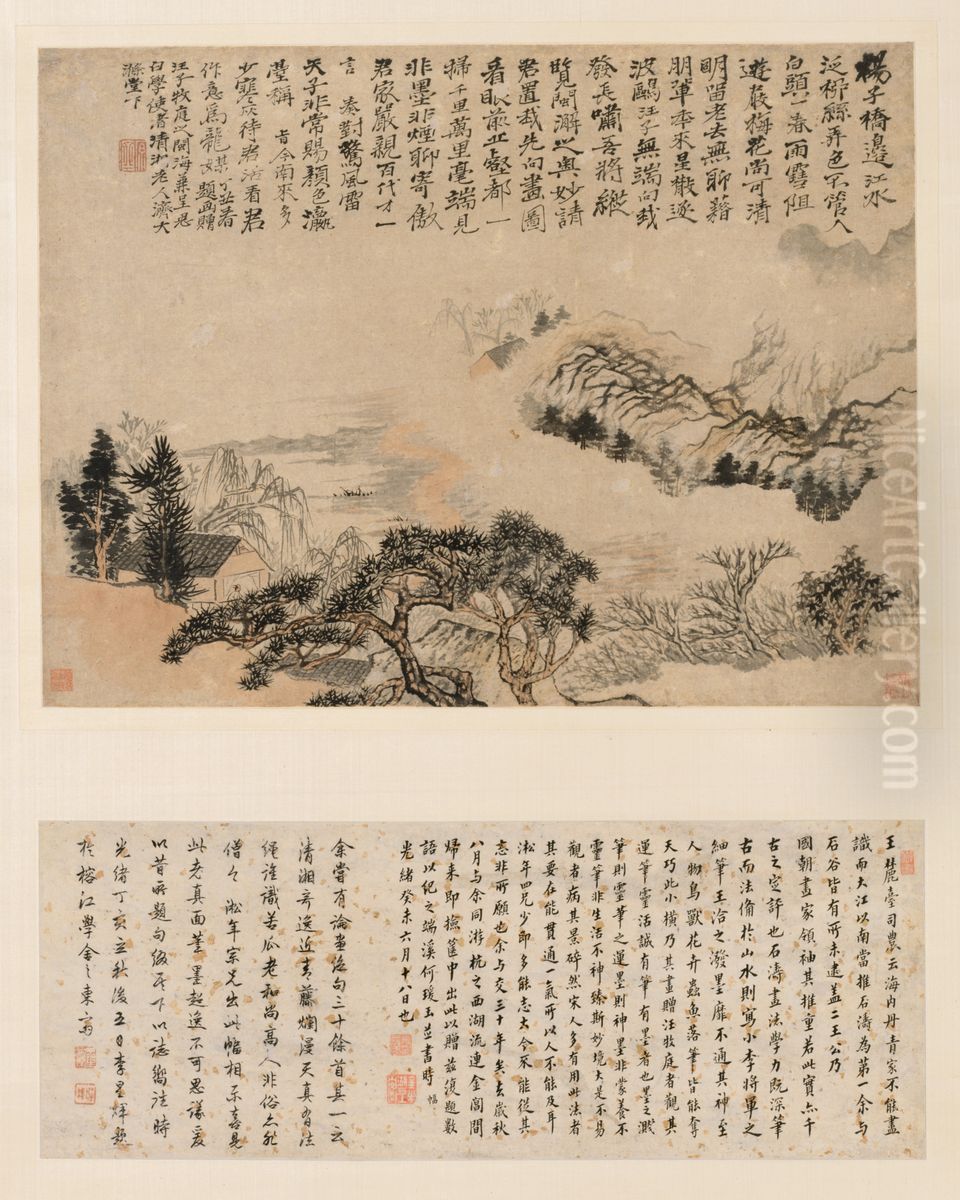 楊子橋邊江水
泛柳絲弄色不管人
白頭一春雨雪阻
遊嚴梅花尚可清
明留老去無聊藉
朋輩年來星散逐
波鷗汪子無端向我
發長嘯吾將縱
覽閩澥之奧妙請
君置我先向畫圖
看眼前丘壑都一
掃千里萬里毫端見
非墨非煙聊寄傲
君家嚴親百代才一
言 奏對驚風雷
天子非常賜顏色瀛
臺稱 旨今南來多
少寒灰待君活看君
作意為龍媒 題画贈
汪子牧庭之閩海兼呈思
白學使者清湘老人濟大
滌堂下
王麓臺司農云海內丹青家不能盡
識而大江以南當推石濤為第一余與
石谷皆有所未逮蓋二王公乃
國朝畫家領袖其推重若此實亦千
古之定評也石濤畫法學力既深筆
古而法備於山水則寫小李將軍之
細筆王洽之潑墨靡不通其神至
人物鳥獸花卉蟲魚落筆皆能奪
天巧此小橫乃其畫贈汪牧庭者觀其
運筆靈活誠有筆有墨者也墨之濺
筆則靈筆之運墨則神墨非蒙養不
靈筆非生活不神臻斯妙境大是不易
觀者病其景碎然宋人多有用此法者
其要在能貫通一氣所以人不能及耳
淞年四兄少即多能志大今來能從其
志非所願也余與交三十年矣去歲秋
八月與余同游杭之西湖流連金閶間
歸來即撿篋中出此以贈茲復題數
語以紀之端溪何瑗玉並書時
光緒癸未六月十八日也
余嘗有論画絕句三十餘首其一云
清湘奇逸近青藤爛漫天真有法
繩誰識苦瓜老和尚高人非俗亦非
僧今淞年宗兄出此幅相示喜見
此老真面筆墨超逸不可思議爰
以昔所題句綴於下以誌嚮往時
光緒丁亥立秋後五日李星煇題
於榕江學舍之東